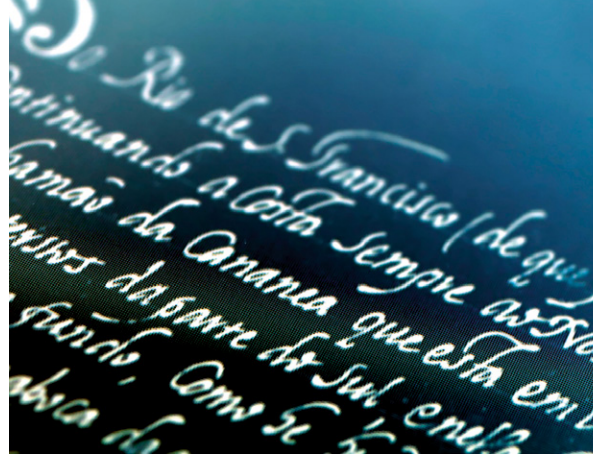 Do Rio de S. Francisco / de que
Continuando a Costa sempre ao No
da Cananea que esta em
da parte do Sul, e nella
fundo, Como se